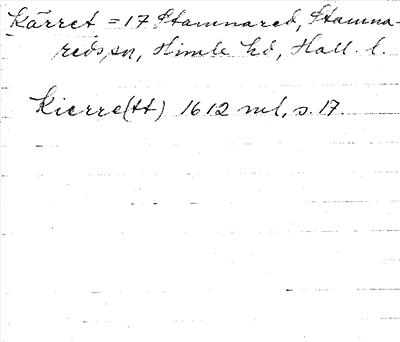 Kärret = 17 Stamnared, Stamna-
reds sn, Himle hd, Hall. l.
Kierre(tt) 1612 ml, s. 17.